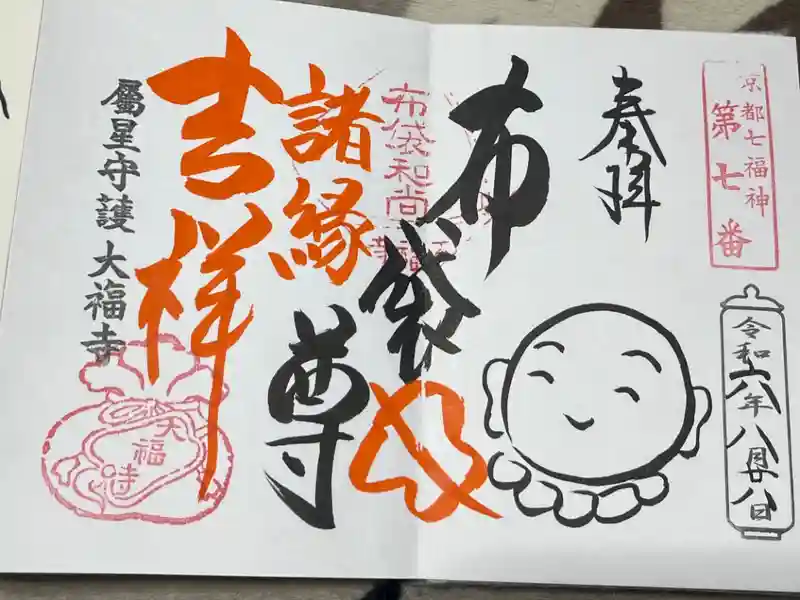 京都七福神
第七番
令和六年八月廿八日
奉拝
布袋尊
布袋和尚
諸縁
吉祥
屬星守護 大福寺
大福